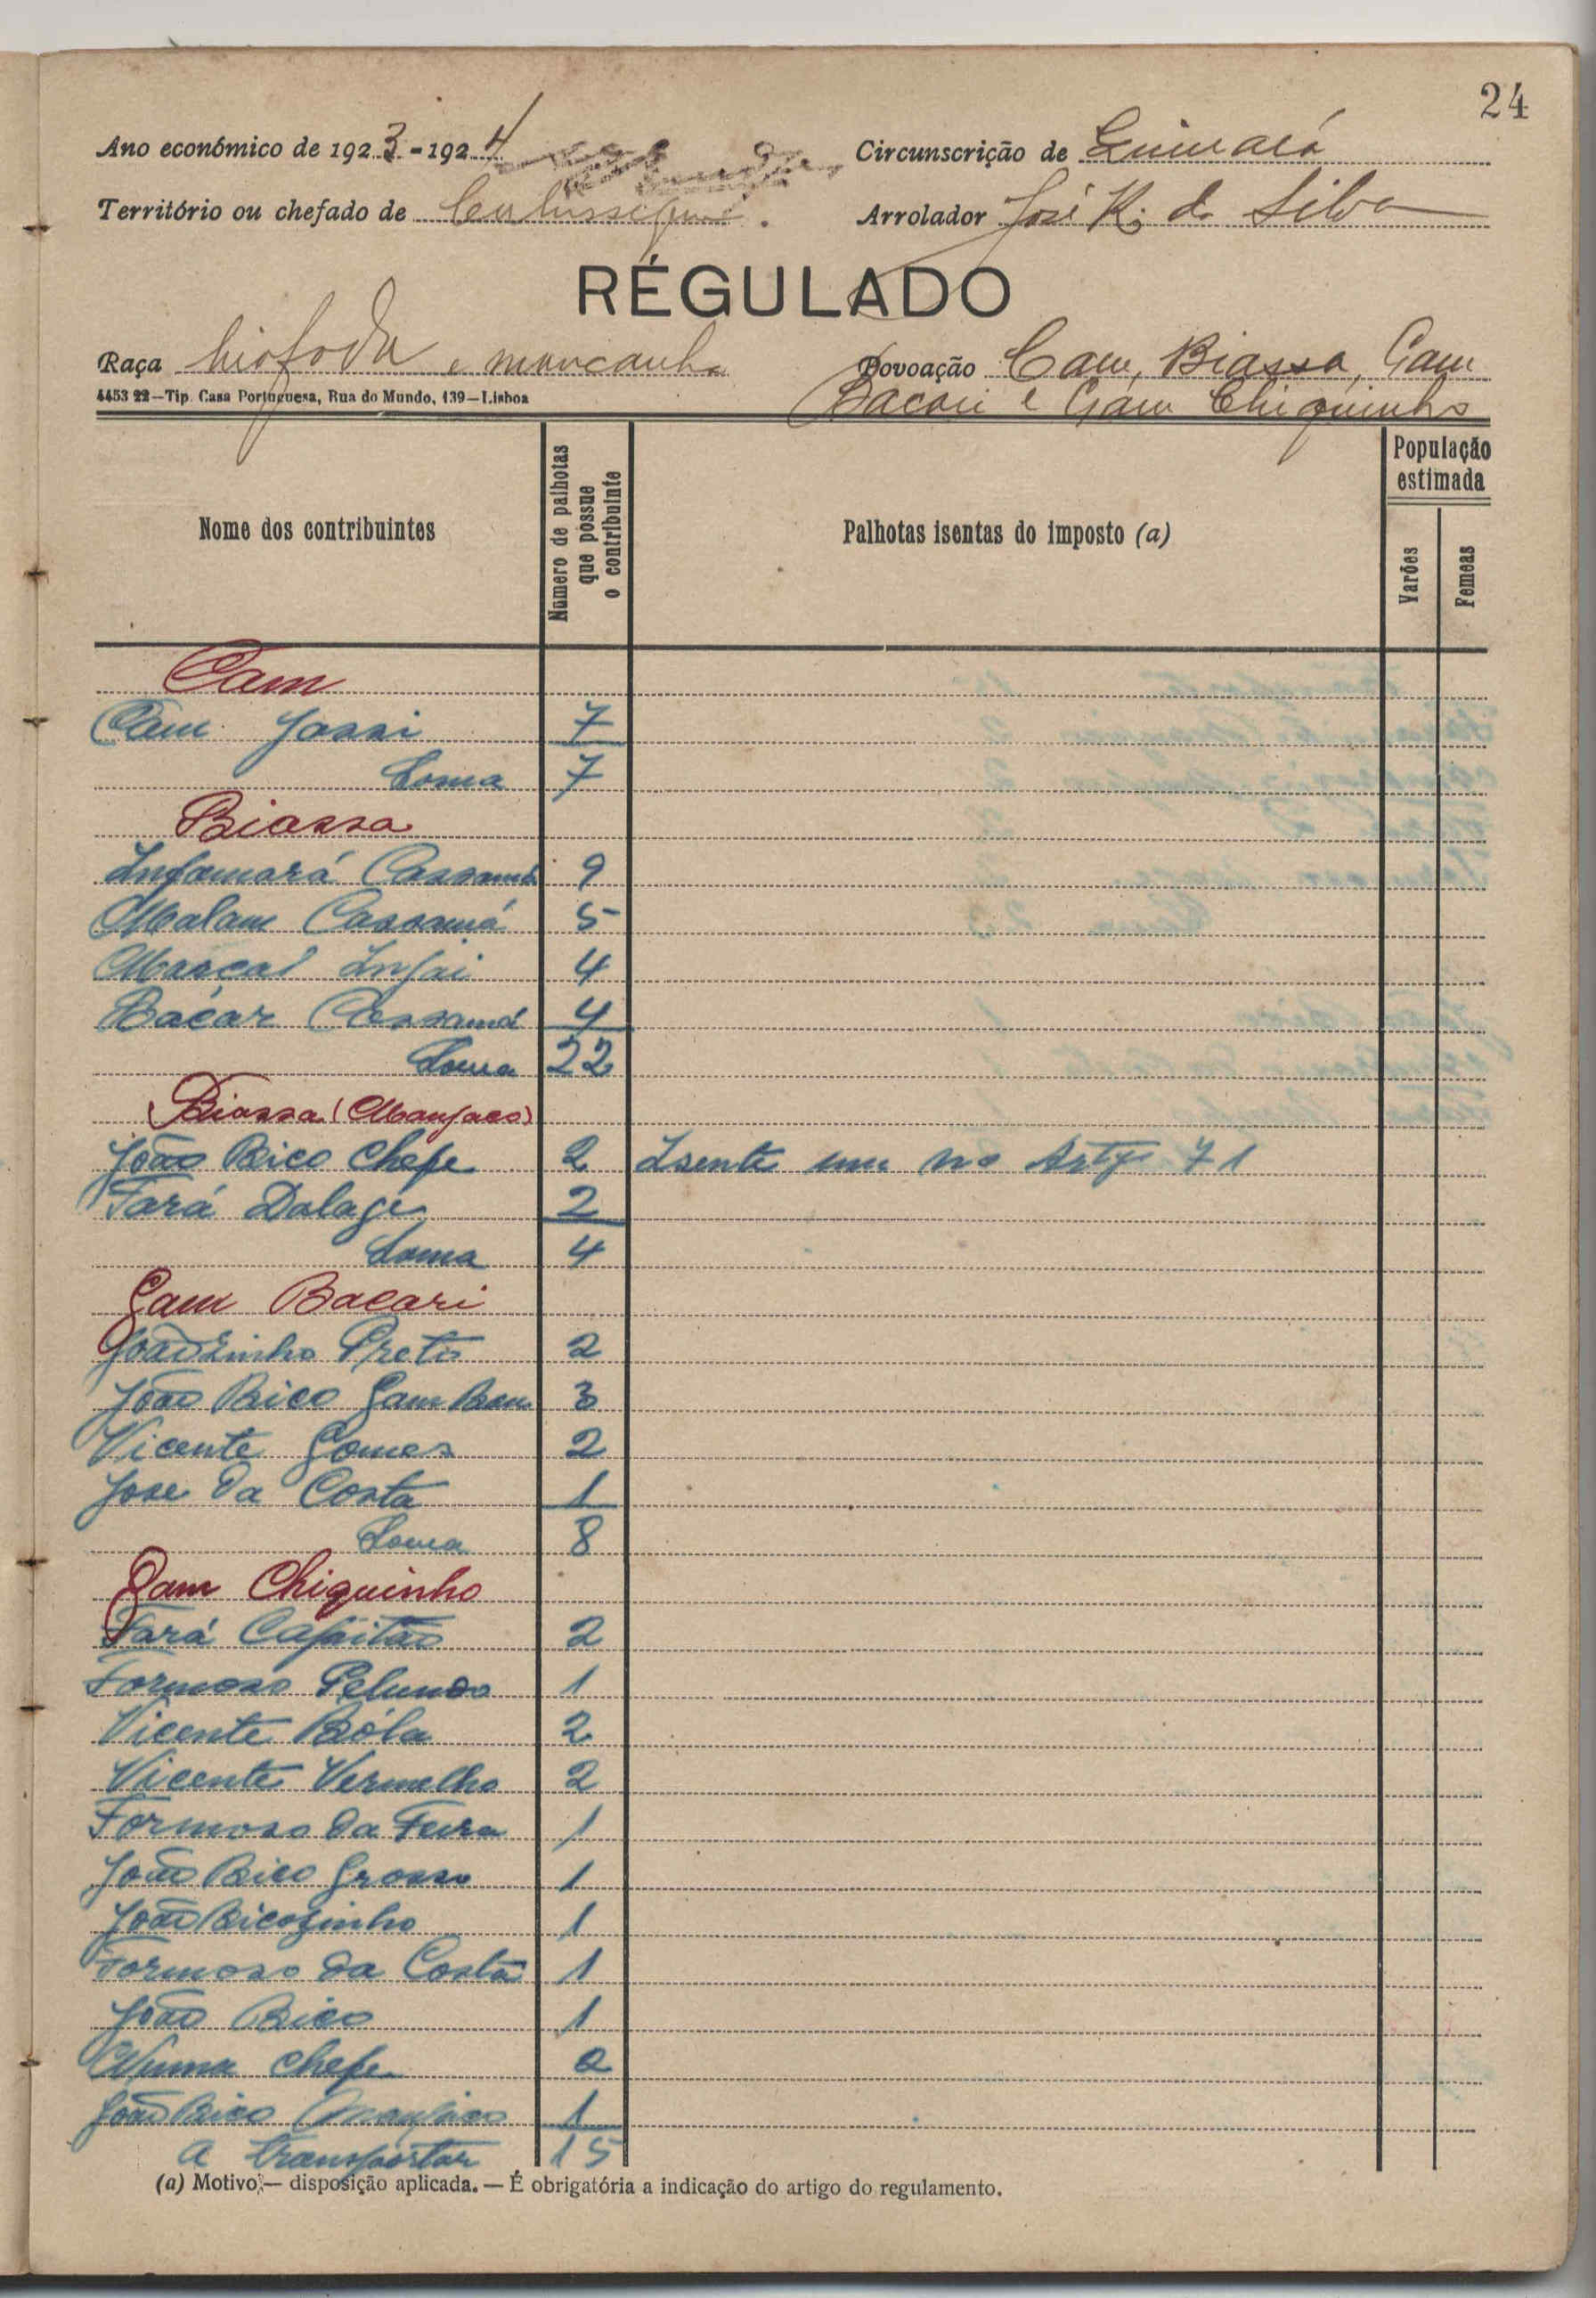 24
Ano económico de 1923-1924
Circunscrição de
Território ou chefado de
Arrolador José R. da Silva
RÉGULADO
Raça biafada e mancanha
Povoação Cam, Biassa, Gam
Bacari e Gam Chiquinho
4453 22—Tip. Casa Portuguesa, Rua do Mundo, 139—Lisboa
Nome dos contribuintes
Número de palhotas que possue o contribuinte
Palhotas isentas do imposto (a)
População estimada
Varões
Femeas
Cam
Cam Jassi 7
Soma 7
Biassa
Infamará Cassamá 9
Malam Cassamá 5
Marçal Injai 4
Bacar Cassamá 4
Soma 22
Biassa (Manjaco)
João Bico Chefe 2 Isente um no Artgº 71
Fará Dalagé 2
Soma 4
Gam Bacari
Joãozinho Preto 2
João Bico Gam Bam 3
Vicente Gomes 2
Jose da Costa 1
Soma 8
Gam Chiquinho
Fará Capitão 2
Formoso Pelundo 1
Vicente Bóla 2
Vicente Vermelho 2
Formoso da Feira 1
João Bico Grosso 1
João Bicozinho 1
Formoso da Costa 1
João Bico 1
Numa Chefe 2
João Bico Manjaco 1
A transportar 15
(a) Motivo;— disposição aplicada. — É obrigatória a indicação do artigo do regulamento.